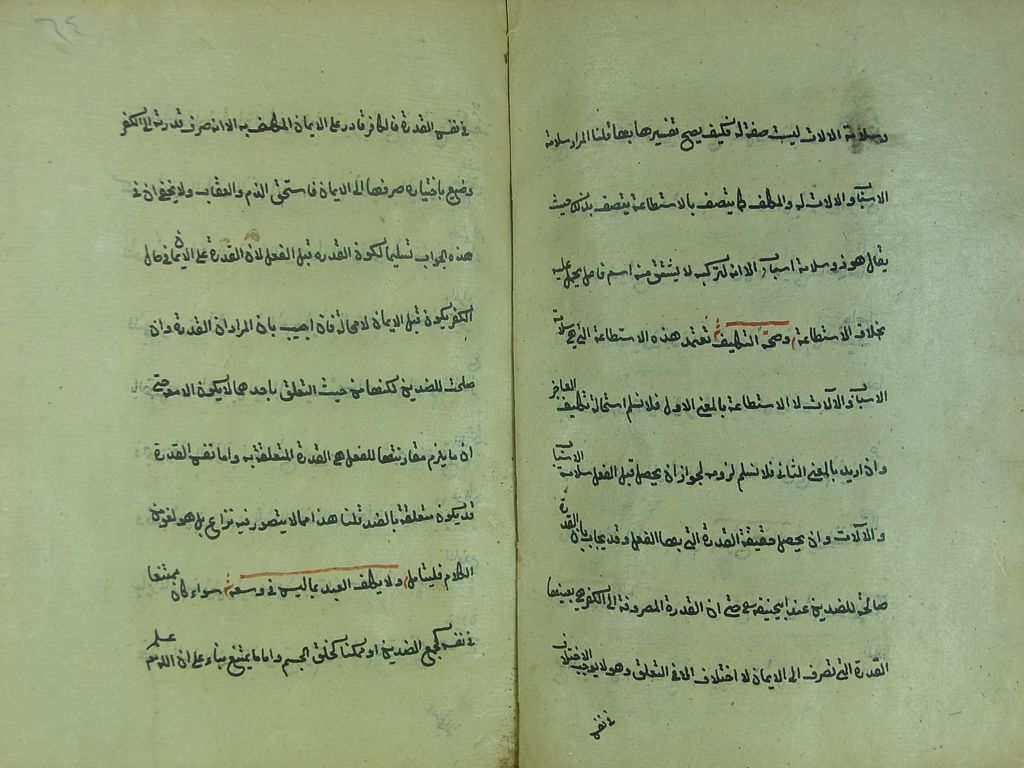 وسلامة الالات ليست صفة له فكيف يصح تفسيرها بها قلنا المراد سلامة
الاسباب والالات له والمكلف كما يتصف بالاستطاعة يتصف بذلك حيث
يقال هو ذو سلامة اسباب الا انه لتركبه لا يشتق منه اسم فاعل يحمل عليه
بخلاف الاستطاعة وصحة التكليف تعتمد هذه الاستطاعة التي هي سلامة
الاسباب والآلات لا الاستطاعة بالمعنى الاول فلا نسلم استحالة تكليف العاجز
وان اريد بالمعنى الثاني فلا نسلم لزومه لجواز ان يحصل قبل الفعل سلامة الاسباب
والآلات وان لم يحصل حقيقة القدرة التي بها الفعل وقد يجاب بان القدرة
صالحة للضدين عند ابي حنيفة حتى ان القدرة المصروفة الى الكفر هي بعينها
القدرة التي تصرف الى الايمان لا اختلاف الا في التعلق وهو لا يوجب الاختلاف
في نفس
٦٤
في نفس القدرة فالكافر قادر على الايمان المكلف به الا انه صرف قدرته الى الكفر
وضيع باختياره صرفها الى الايمان فاستحق الذم والعقاب ولا يخفى ان في
هذه الجواب تسليما لكون القدرة قبل الفعل لان القدرة على الايمان في حال
الكفر يكون قبل الايمان لا محالة فان اجيب بان المراد ان القدرة وان
صلحت للضدين لكنها من حيث التعلق باحدهما لا يكون الا معه حتى
ان ما يلزم مقارنتها للفعل هي القدرة المتعلقة به واما نفس القدرة
قد يكون متعلقة بالضد قلنا هذا مما لا يتصور فيه نزاع بل هو لغو من
الكلام فليتامل ولا يكلف العبد بما ليس في وسعه سواء كان ممتنعا
في نفسه كجمع الضدين او ممكنا كخلق الجسم واما ما يمتنع بناء على ان الله علم